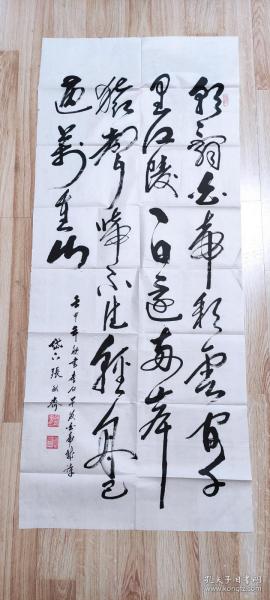 朝辞白帝彩云间千
里江陵一日还两岸
猿声啼不住轻舟已
过万重山
壬申年秋书李白早发白帝城诗
岱下张
孔夫子旧书网